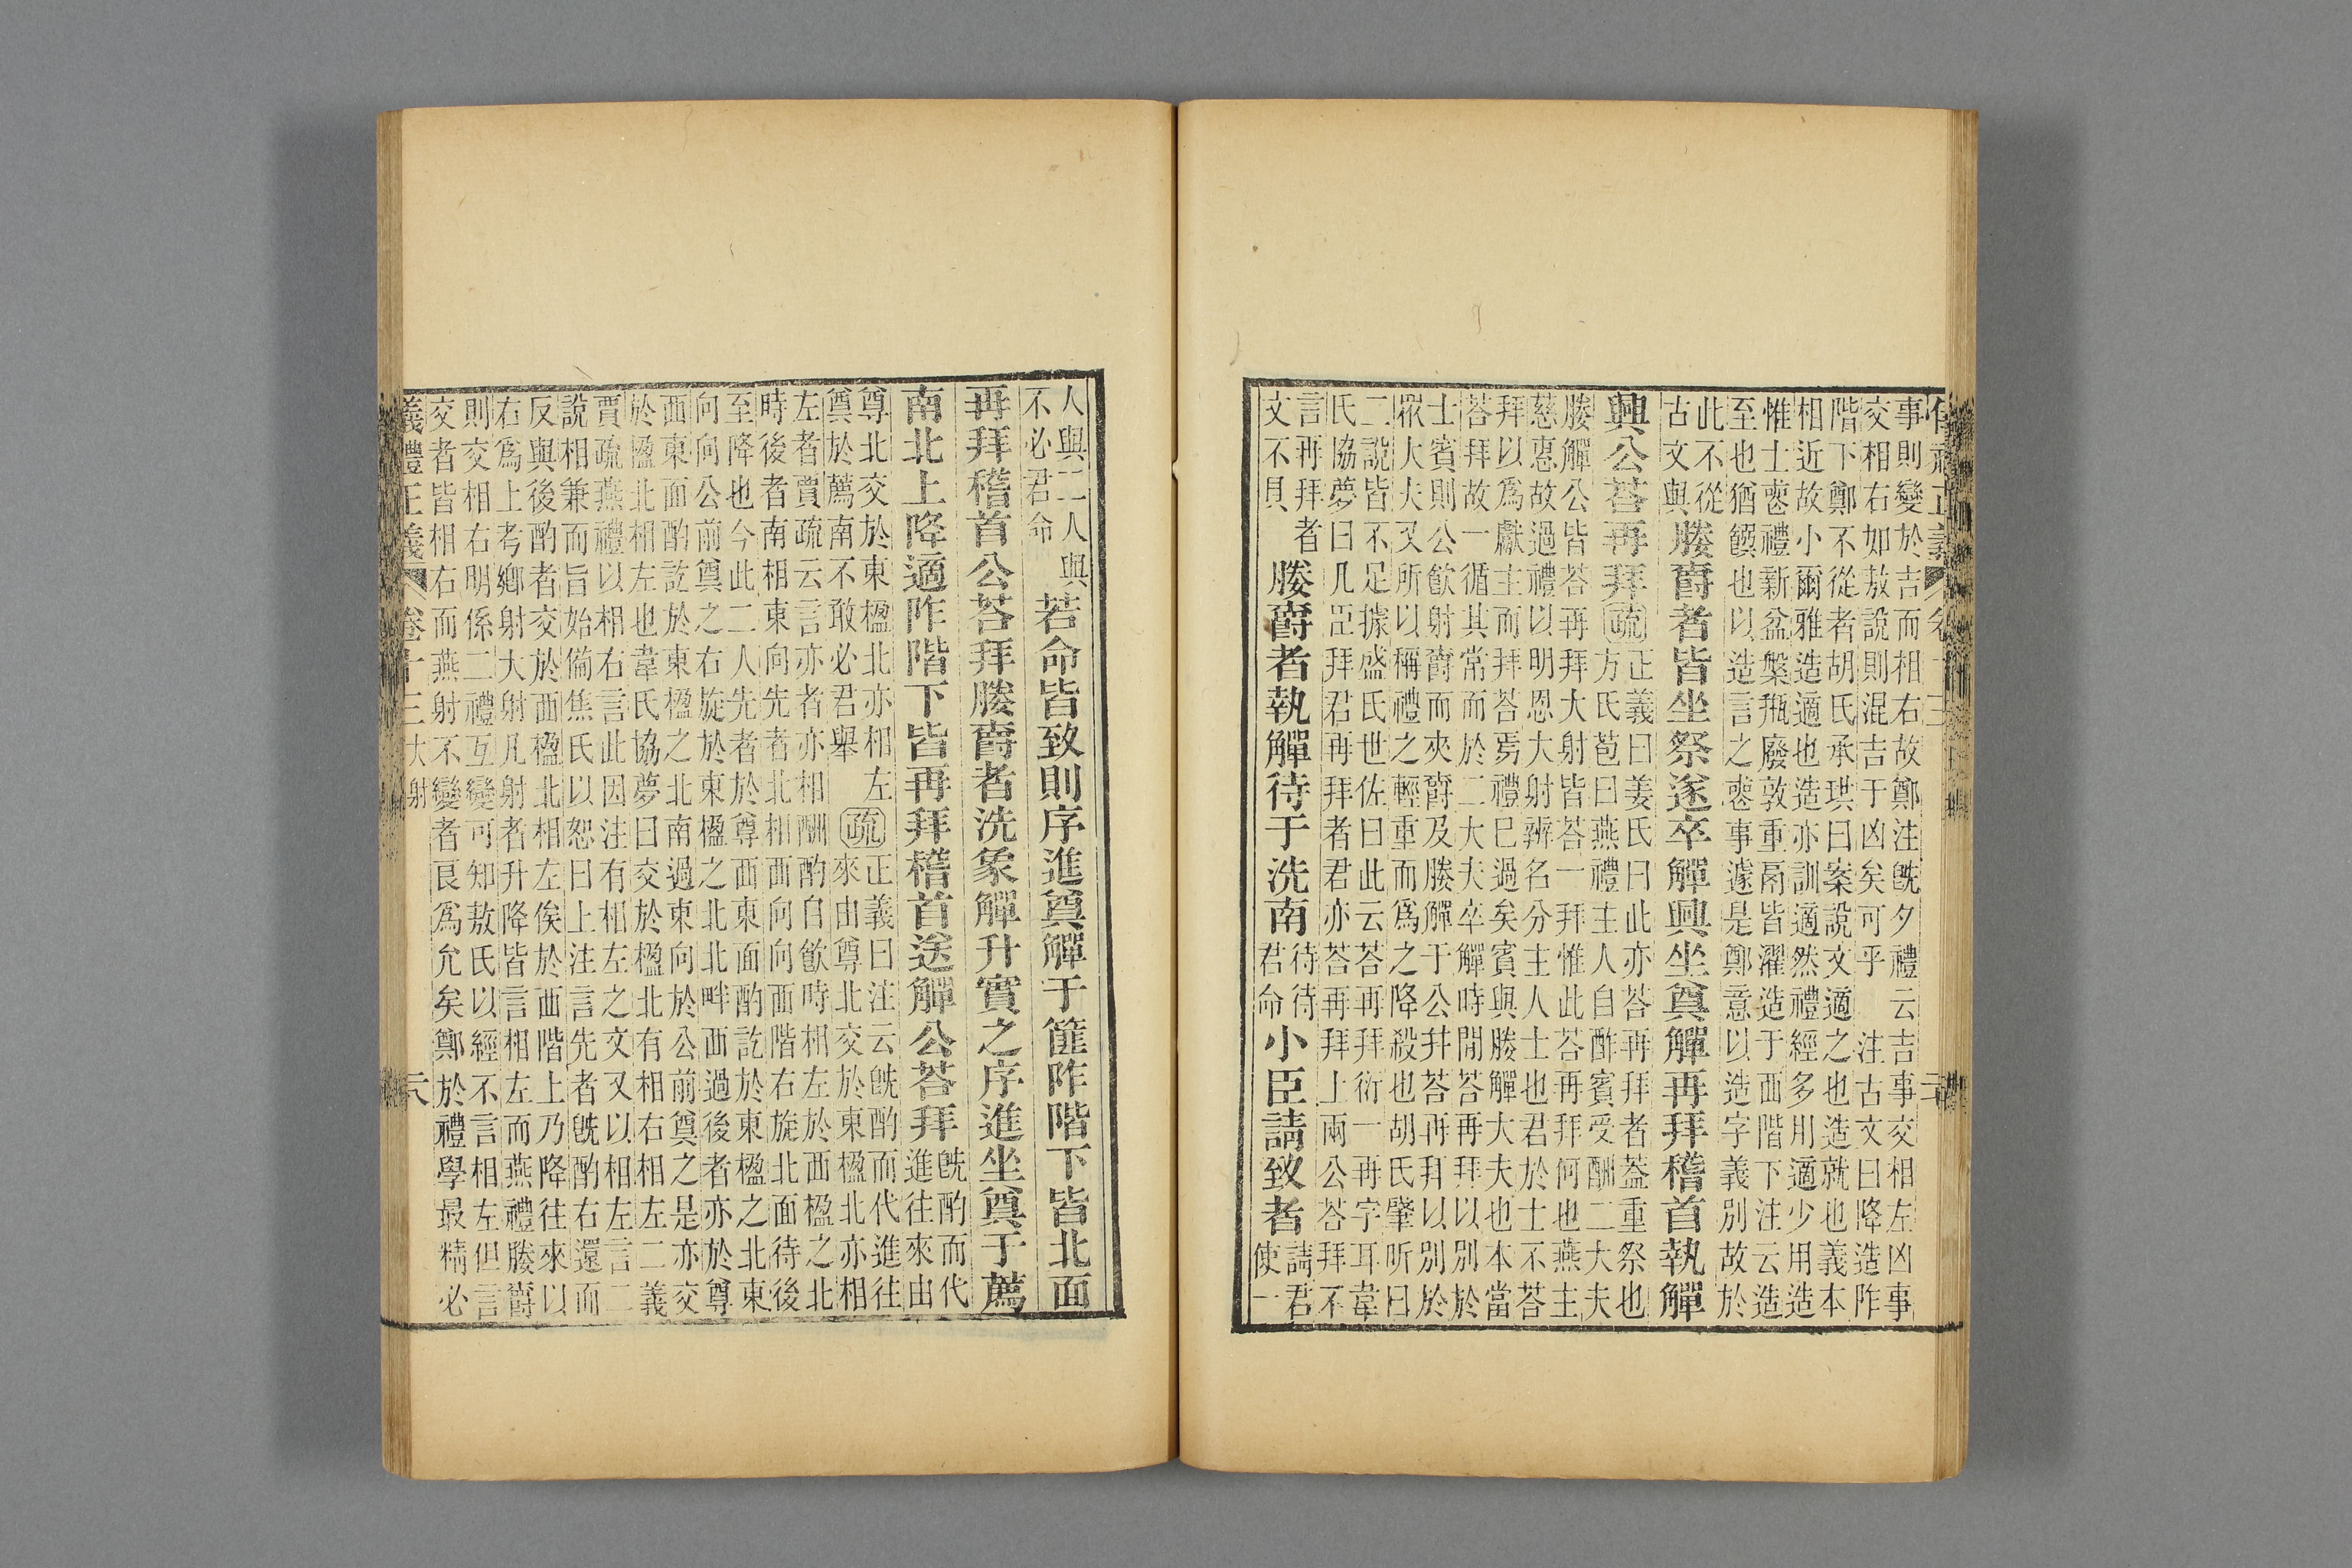 事則變於吉而相右故鄭注旣夕禮云吉事交相左凶事
交相右如敖說則混吉于凶矣可乎　注古文曰降造阼
階下鄭不從者胡氏承珙曰案說文適之也造就也義本
相近故小爾雅造適也造亦訓適然禮經多用適少用造
惟士喪禮新盆槃瓶廢敦重鬲皆濯造于西階下注云造
至也猶饌也以造言之喪事遽是鄭意以造字義別故於
此不從
古文與
媵爵者皆坐祭遂卒觶興坐奠觶再拜稽首執觶
興公荅再拜疏
正義曰姜氏曰此亦荅再拜者葢重祭也
方氏苞曰燕禮主人自酢賓受酬二大夫
媵觶公皆荅再拜大射皆荅一拜惟此荅再拜何也燕主
慈惠故過禮以明恩大射辨名分主人士也君於士不荅
拜以爲獻主而拜荅焉禮巳過矣賓與媵觶大夫也本當
荅拜故一循其常而於二大夫卒觶時閒荅再拜以別於
士賓則公飮射爵而夾爵及媵觶于公幷荅再拜以別於
眾大夫又所以稱禮之輕重而爲之降殺也胡氏肇昕曰
二說皆不足據盛氏世佐曰此云荅再拜衍一再字耳韋
氏協夢曰凡臣拜君再拜者君亦荅再拜上兩公荅拜不
言再拜者
文不具
媵爵者執觶待于洗南
待待
君命
小臣請致者
請君
使一
人與二人與
不必君命
若命皆致則序進奠觶于篚阼階下皆北面
再拜稽首公荅拜媵爵者洗象觶升實之序進坐奠于薦
南北上降適阼階下皆再拜稽首送觶公荅拜
旣酌而代
進往來由
尊北交於東楹北亦相左
奠於薦南不敢必君舉
疏
正義曰注云旣酌而代進往
來由尊北交於東楹北亦相
左者賈疏云言亦者亦相酬酌自飮時相左於西楹之北
時後者南相東向先者北相西向向西階右旋北面待後
至降也今此二人先者於尊西東面酌訖於東楹之北東
向向公前奠之右旋於東楹之北北畔西過後者亦於尊
西東面酌訖於東楹之北南過東向於公前奠之是亦交
於楹北相左也韋氏協夢曰交於楹北有相右相左二義
賈疏燕禮以相右言此因注有相左之文又以相左言二
說相兼而旨始備焦氏以恕曰上注言先者旣酌右還而
反與後酌者交於西楹北相左俟於西階上乃降往來以
右爲上考鄉射大射凡射者升降皆言相左而燕禮媵爵
則交相右明係二禮互變可知敖氏以經不言相左但言
交者皆相右而燕射不變者艮爲允矣鄭於禮學最精必
義禮正義　卷十三　大射